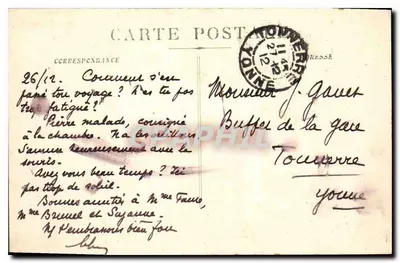 CARTE POSTALE
CORRESPONDANCE
ADRESSE
TONNERRE
YONNE
26/12. Comment s'est
passé ton voyage? N'es tu pas
trop fatigué?
Pierre malade, consigné
à la chambre. N a les
heureusement avec le
souris.
Avez vous beau temps? Ici
pas trop de soleil.
Bonnes amitiés à Mme
Mme Brunel et Suzanne.
Ns t'embrassons bien fort
Monsieur J. Ganet
Buffet de la gare
Tonnerre
Yonne